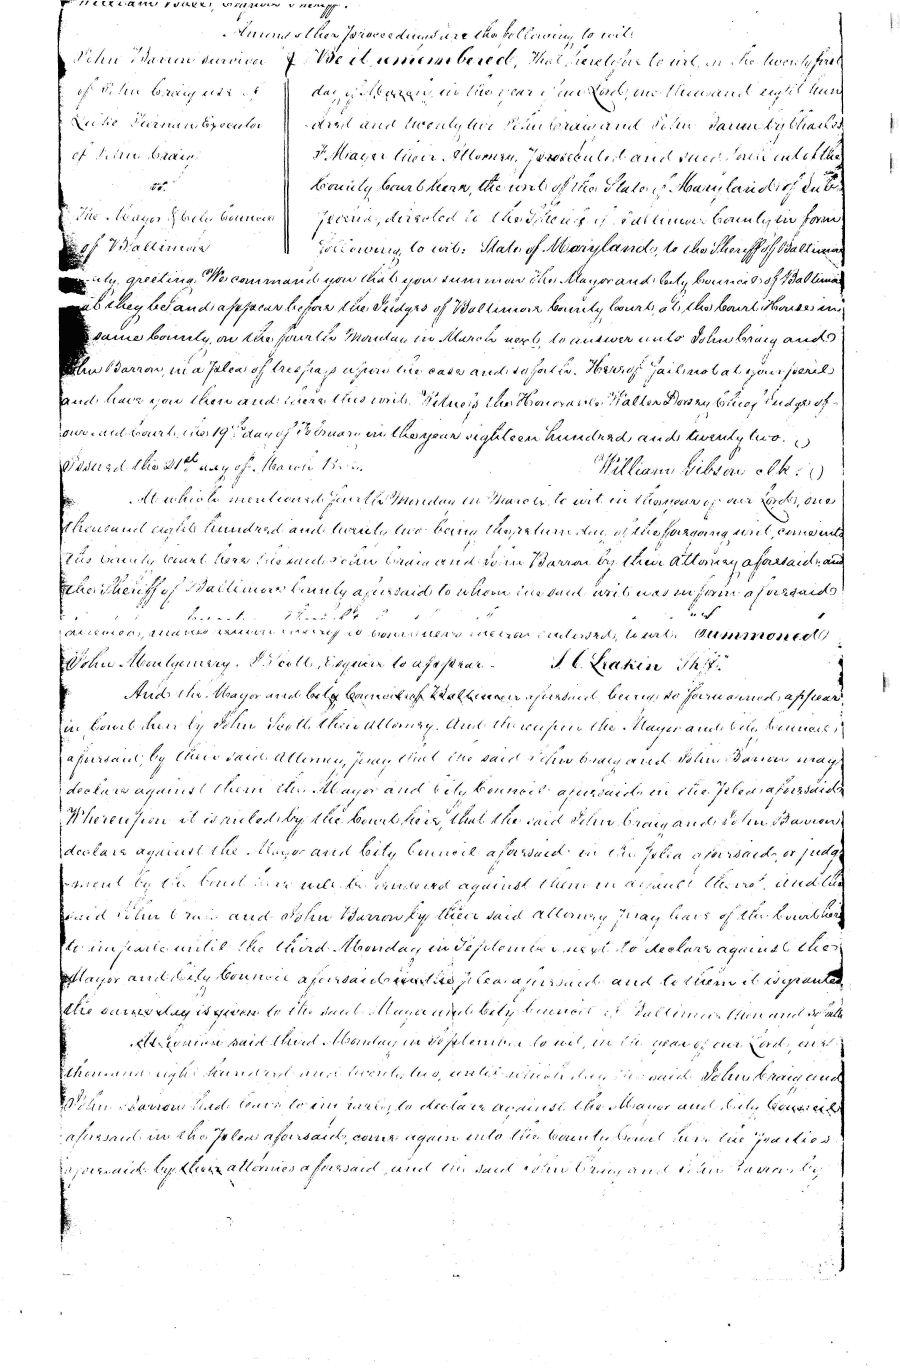 Among other proceedings are the following, to wit:
John Barron survivor
of John Craig use of
Luke Tiernan Executor
of John Craig
vs.
The Mayor & City Council
of Baltimore
Be it remembered, That heretofore to wit, on the twenty first
day of March in the year of our Lord, one thousand eight hun
dred and twenty two John Craig and John Barron by Charles
F. Mayer their Attorney, prosecuted and sued forth out of the
County Court here, the writ of the State of Maryland, of Sub-
poena, directed to the Sheriff of Baltimore County in form
following, to wit: State of Maryland, to the Sheriff of Baltimore
greeting. We command you that you summon the Mayor and City Council of Baltimore
that they be and appear before the Judges of Baltimore County Court, at the Court House in
same County, on the fourth Monday in March next, to answer unto John Craig and
John Barron, in a plea of trespass upon the case and so forth. Hereof fail not at your peril
and have you then and there this writ. Witness the Honorable Walter Dorsey Chief Judge of
our said Court, this 19th day of February in the year eighteen hundred and twenty two.
Issued the 21st day of March
William Gibson Clk.
At which mentioned fourth Monday in March, to wit in the year of our Lord, one
thousand eight hundred and twenty two being the return day of the foregoing writ, comes into
the County Court here the said John Craig and John Barron by their attorney aforesaid, and
the Sheriff of Baltimore County aforesaid to whom the said writ was in form aforesaid
directed, makes return thereof to Court here thereon endorsed, to wit. "Summoned
John Montgomery. J Scott, Esquire to appear.
S. C. Leakin Shff."
And the Mayor and City Council of Baltimore aforesaid being so forewarned, appear
in Court here by John Scott their attorney. And thereupon the Mayor and City Council
aforesaid, by their said attorney, pray that the said John Craig and John Barron may
declare against them the Mayor and City Council aforesaid in the plea aforesaid
Whereupon it is ruled by the Court here, that the said John Craig and John Barron
declare against the Mayor and City Council aforesaid in the plea aforesaid, or judge
-ment by the Court here will be rendered against them in default thereof, and the
said John Craig and John Barron by their said attorney pray leave of the Court here
to imparle until the third Monday in September next to declare against the
Mayor and City Council aforesaid in the plea aforesaid and to them it is granted
the same day is given to the said Mayor and City Council of Baltimore then and so forth
At which said third Monday in September to wit, in the year of our Lord, one
thousand eight hundred and twenty two, until which day the said John Craig and
John Barron had leave to imparle, to declare against the Mayor and City Council
aforesaid in the plea aforesaid, come again into the County Court here the parties
aforesaid by their attornies aforesaid, and the said John Craig and John Barron by